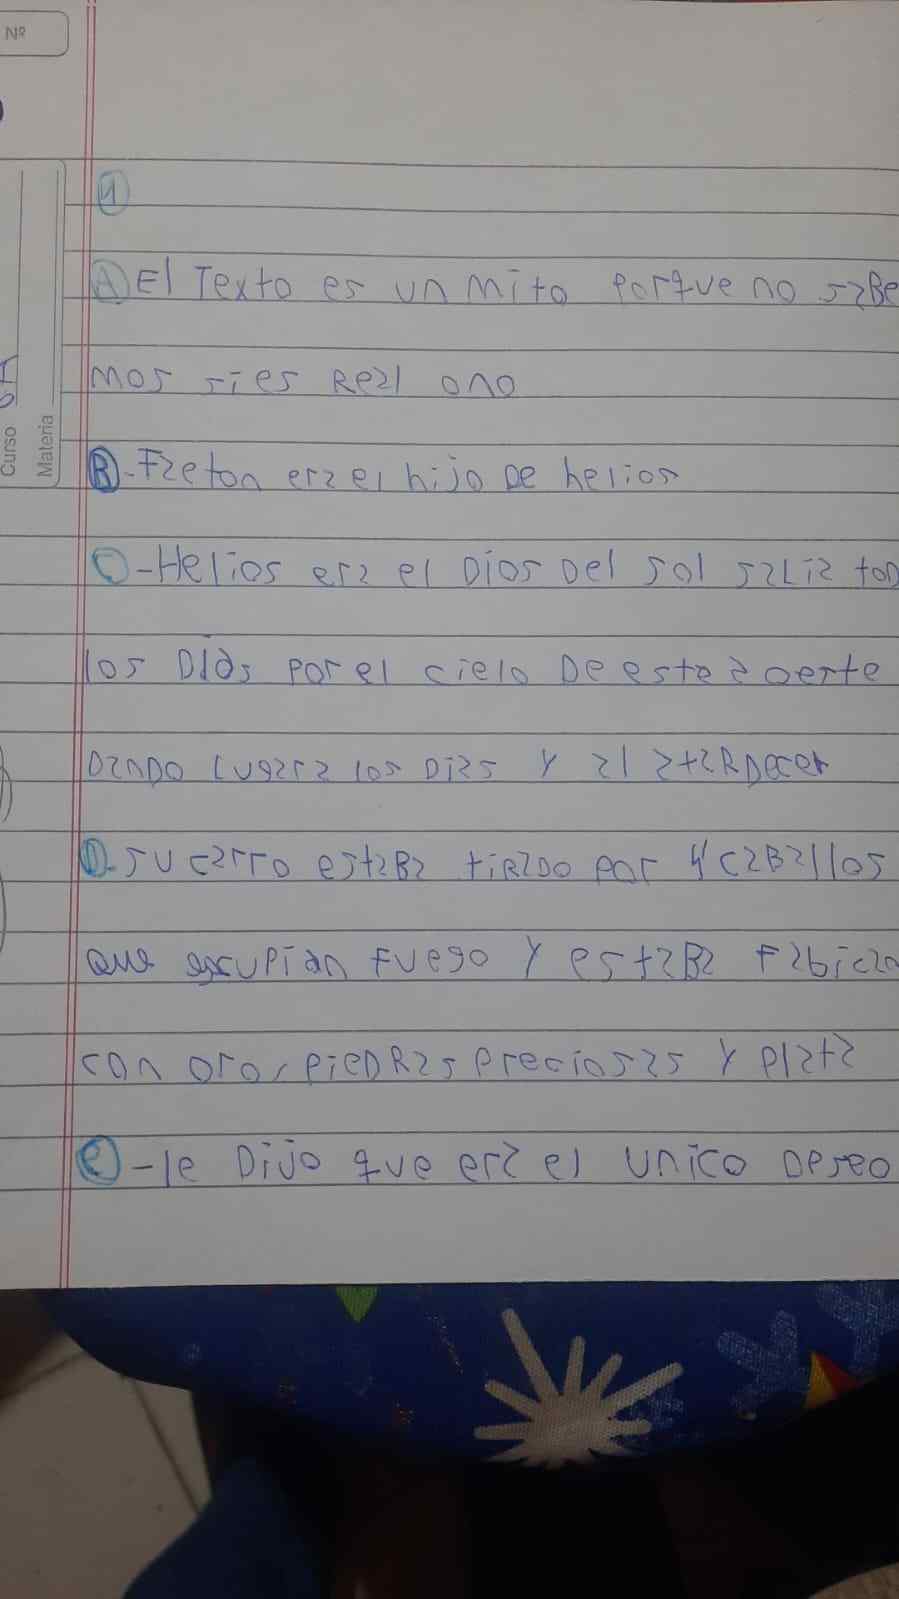 Nº
Curso
Materia
1
A El Texto es un mito porque no saBe
mos si es Real ono
B-Faeton era el hijo De helios
C-Helios era el Dios Del sol saLia toD
los Dias por el cielo De este a oerte
DanDo Lugar a los Dias y al ataRDecer
D-su carro estaBa tiRaDo por 4 caBallos
que escupian fuego y estaBa Fabican
con oro, pieDRas preciosas y plata
e-le Dijo que era el unico Deseo